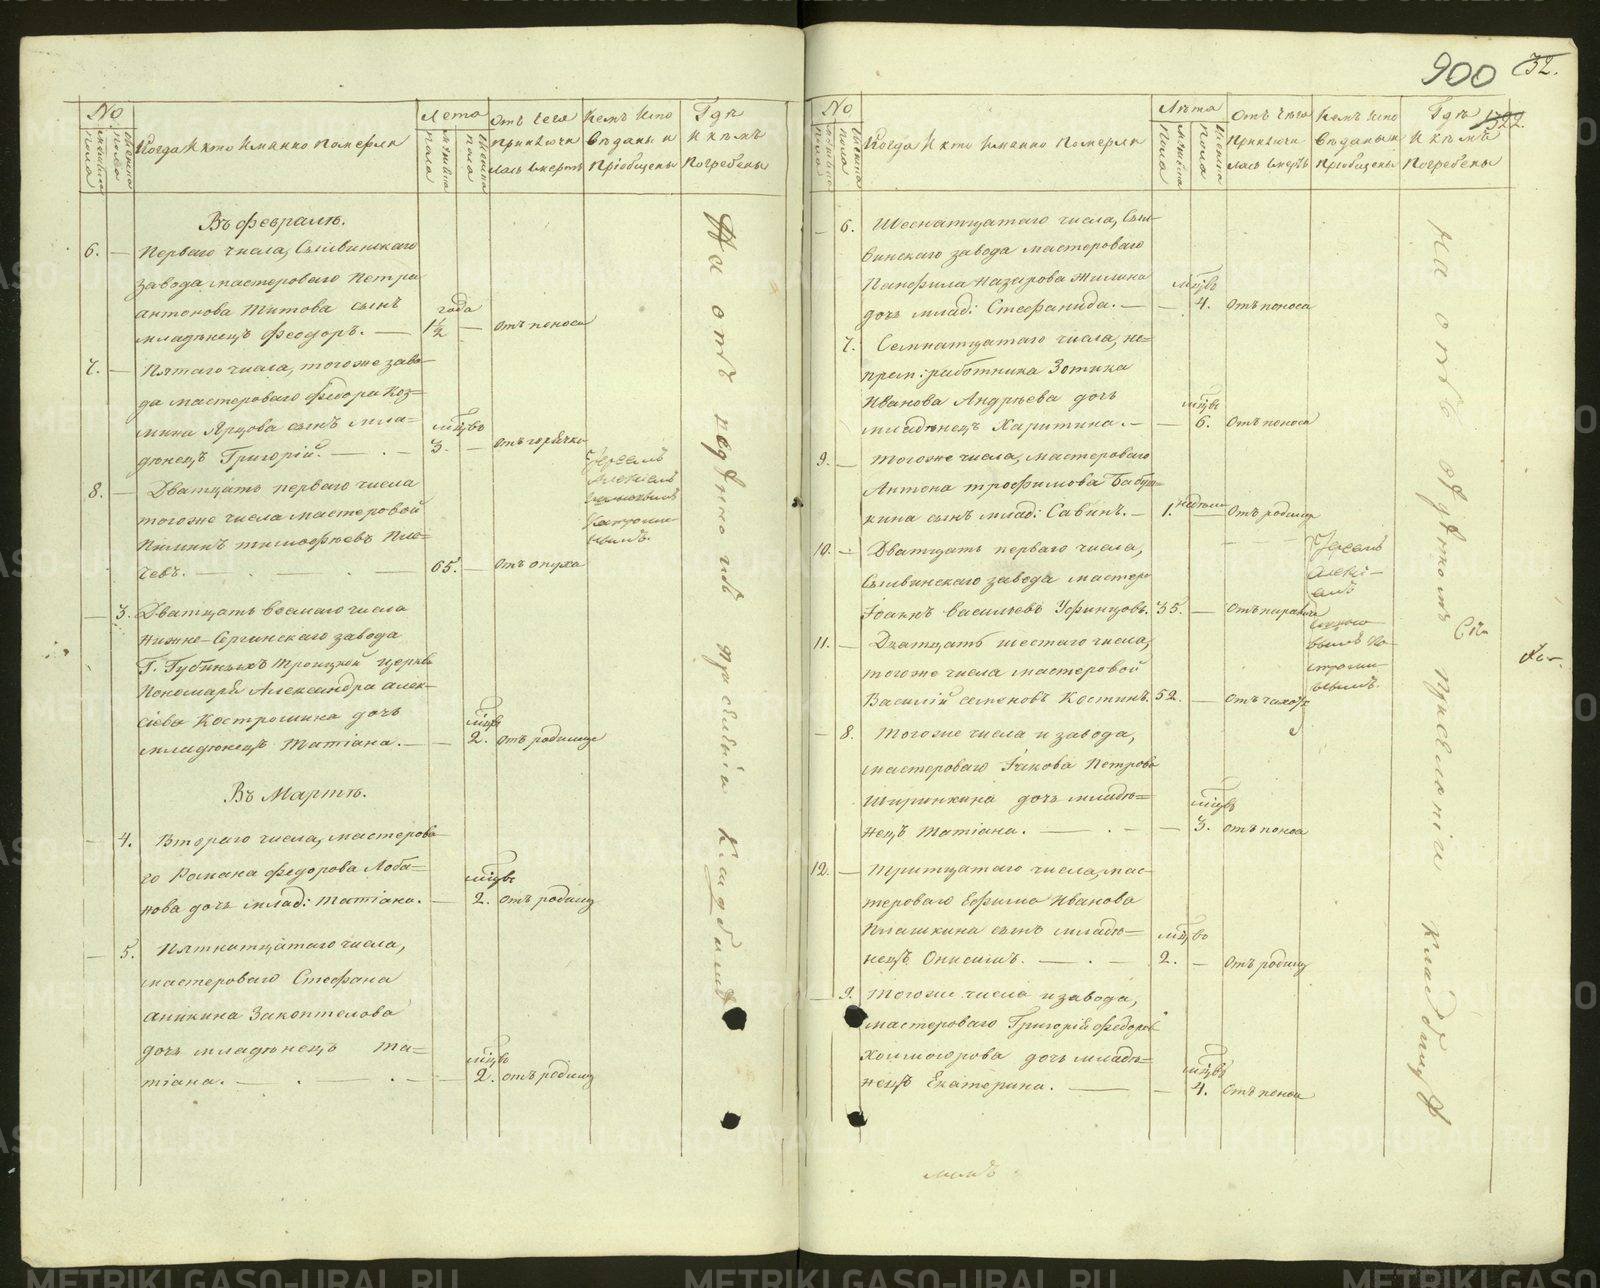 900 32.
1322
№
Мужеска пола
Женска пола
Когда и кто именно померли
Лета
Мужеска пола
Женска пола
Отъ чего приключилась смерть
Кемъ исповѣданы и пріобщены
Гдѣ и кѣмъ погребены
Въ февралѣ.
6. — Перваго числа, Сылвинскаго
завода мастероваго Петра
Антонова Титова сынъ
младѣнецъ Феодоръ. — 1½ года — отъ поноса
7. — Пятаго числа, тогоже заво-
да мастероваго Федора Коз-
мина Ярцова сынъ мла-
дѣнецъ Григорій. — 3. мцъв — отъ горячки
8. — Дватцать перваго числа
тогоже числа мастеровой
Пименъ Тимофѣевъ
65. — отъ опуха
Іереемъ
Алексіемъ
Костроми-
нымъ.
— 3. Дватцать восмаго числа
Нижне-Сергинскаго завода
Г. Губиныхъ Троицкой церкви
Пономаря Александра Алек-
сіева Костромина дочь
младѣнецъ Татіана. — 2. мцъв отъ родимца
Въ Мартѣ.
— 4. Втораго числа, мастерова-
го Романа Федорова Лоба-
нова дочь млад: Татіана. — 2. мцъв отъ родимц
— 5. Пятнатцатаго числа,
мастероваго Стефана
Аникина Закоптелова
дочь младѣнецъ Та-
тіана. — 2. мцъв отъ родимц
На отведенномъ при селеніи кладбищѣ
№
Мужеска пола
Женска пола
Когда и кто именно померли
Лѣта
Мужеска пола
Женска пола
Отъ чего приключилась смерть
Кемъ исповѣданы и пріобщены
Гдѣ и кѣмъ погребены
— 6. Шеснатцатаго числа, Сыл-
винскаго завода мастероваго
Панфила Назарова Жилина
дочь млад: Стефанида. — 4. мцъв отъ поноса
7. Семнатцатаго числа, не-
прем: работника Зотика
Иванова Андрѣева дочь
младѣнецъ Харитина. — 6. мцъв отъ поноса
9. — Тогоже числа, мастероваго
Антона Трофимова Бабуш-
кина сынъ млад: Савинъ. — 1. недѣли — отъ родимца
10. — Дватцать перваго числа,
Сылвинскаго завода мастеро
Іоаннъ Васильевъ Уфинцовъ. 35. —
Іереемъ
Алексі-
емъ
Ко-
строми-
нымъ.
11. — Дватцать шестаго числа,
тогоже числа мастеровой
Василій Семеновъ Костинъ. 52. — отъ чахотк
— 8. Тогоже числа и завода,
мастероваго Іякова Петрова
Ширинкина дочь младѣ-
нецъ Татіана. — 3. мцъв отъ поноса
12. — Тритцатаго числа, мас-
тероваго Ефима Иванова
Плашкина сынъ младѣ-
нецъ Онисимъ. — 2. мцъв — отъ родимц
— 9. Тогоже числа и завода,
мастероваго Григорій Федоров
Холмогорова дочь младѣ-
нецъ Екатерина. — 4. мцъв отъ поноса
На отведенномъ при селеніи кладбищѣ
METRIKI.GASO-URAL.RU